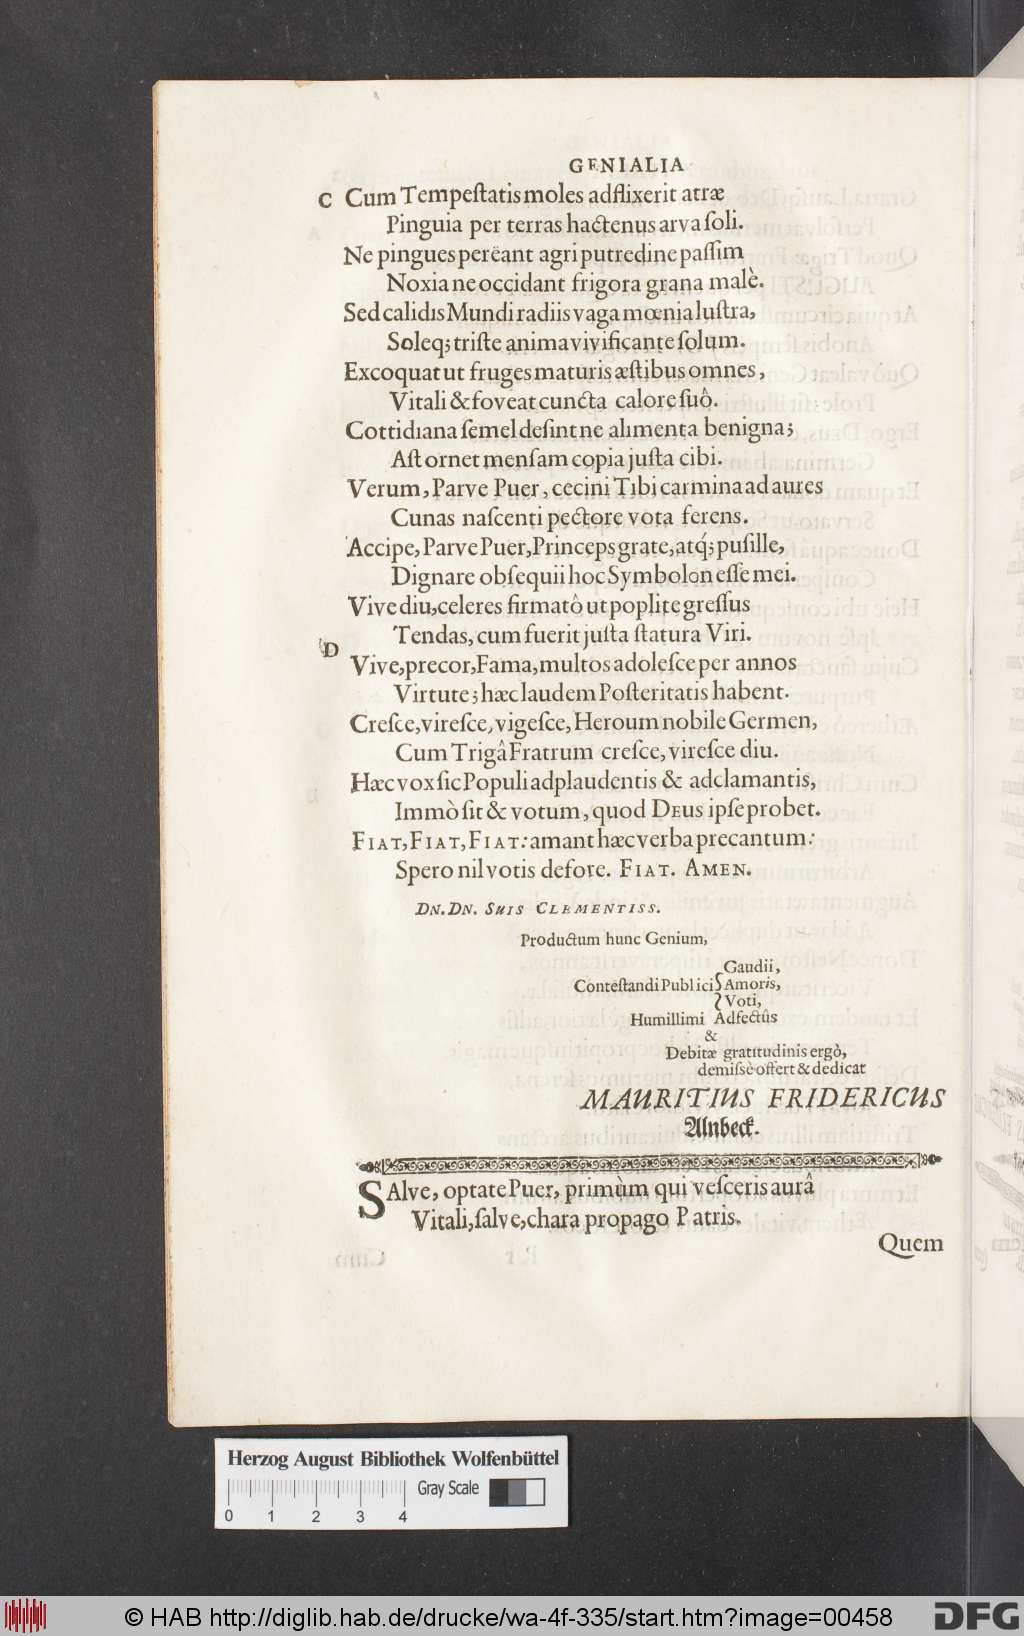 GENIALIA
C Cum Tempeſtatis moles adflixerit atræ
Pinguia per terras hactenus arva ſoli.
Ne pingues perëant agri putredine paſſim
Noxia ne occidant frigora grana malè.
Sed calidis Mundi radiis vaga mœnia luſtra,
Soleq; triſte anima vivificante ſolum.
Excoquat ut fruges maturis æſtibus omnes,
Vitali & foveat cuncta calore ſuô.
Cottidiana ſemel deſint ne alimenta benigna;
Aſt ornet menſam copia juſta cibi.
Verum, Parve Puer, cecini Tibi carmina ad aures
Cunas naſcenti pectore vota ferens.
Accipe, Parve Puer, Princeps grate, atq́; puſille,
Dignare obſequii hoc Symbolon eſſe mei.
Vive diu, celeres firmatô ut poplite greſſus
Tendas, cum fuerit juſta ſtatura Viri.
D Vive, precor, Fama, multos adoleſce per annos
Virtute; hæc laudem Poſteritatis habent.
Creſce, vireſce, vigeſce, Heroum nobile Germen,
Cum Trigâ Fratrum creſce, vireſce diu.
Hæc vox ſic Populi adplaudentis & adclamantis,
Immò ſit & votum, quod DEus ipſe probet.
FIAT, FIAT, FIAT: amant hæc verba precantum:
Spero nil votis defore. FIAT. AMEN.
DN. DN. SUIS CLEMENTISS.
Productum hunc Genium,
Gaudii,
Conteſtandi Publici Amoris,
Voti,
Humillimi Adfectûs
&
Debitæ gratitudinis ergò,
demiſsè offert & dedicat
MAURITIUS FRIDERICUS
Alnbeck.
SAlve, optate Puer, primùm qui veſceris aurâ
Vitali, ſalve, chara propago Patris.
Quem
Herzog August Bibliothek Wolfenbüttel
Gray Scale
0 1 2 3 4
© HAB http://diglib.hab.de/drucke/wa-4f-335/start.htm?image=00458
DFG